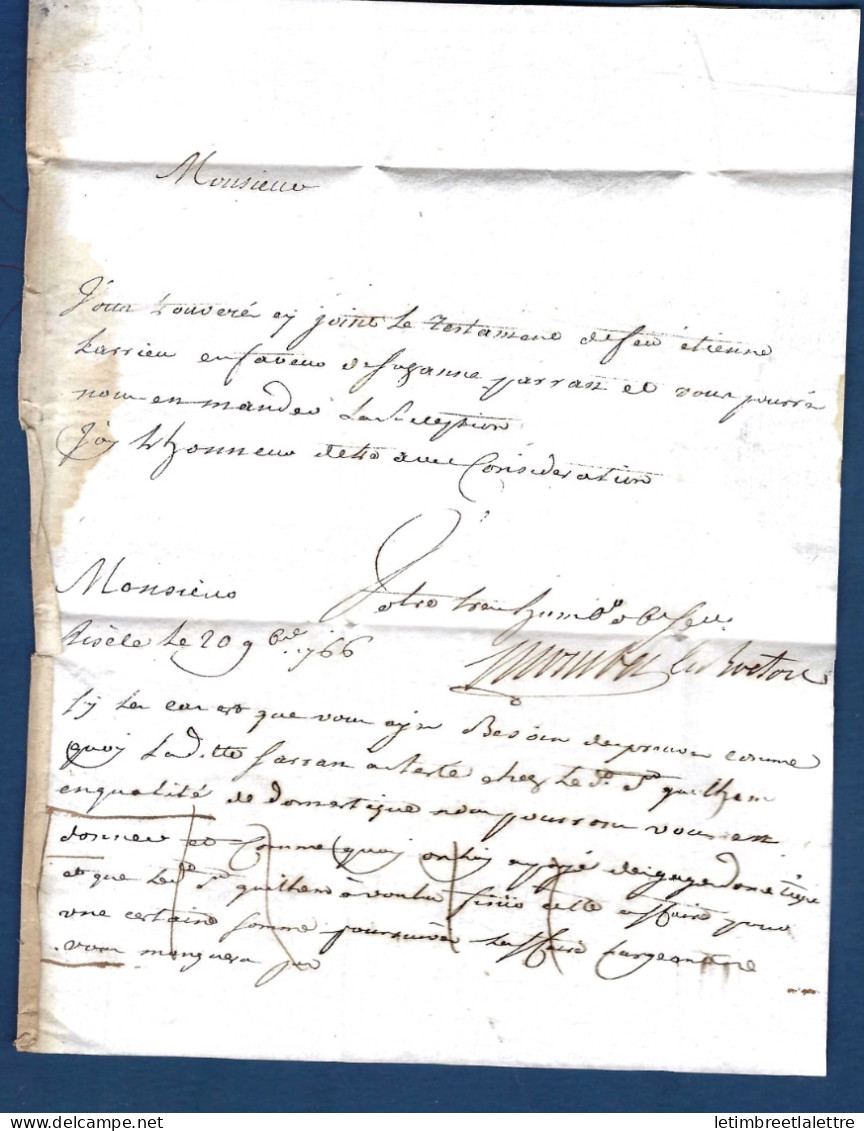 Monsieur
Vous trouveré cy joint le testament de feu étienne
Larrieu en faveur de Suzanne parran et vous pourrés
nous en mander la Reception
J'ay L'honneur detre avec Consideration
Monsieur
Votre tres humb obe ser
le 20 9bre 1766
Sy le cas est que vous ayés Besoin de preuve comme
quoy Laditte farran a resté chez le Sr guilhem
en qualité de domestique nous pourrons vous en
donner et Comme quoy on luy a payé des gages
et que le Sr guilhem à voulu finir cette affaire pour
une certaine somme poursuivés Laffaire Largeant ne
vous manquera pas
letimbreetlalettre